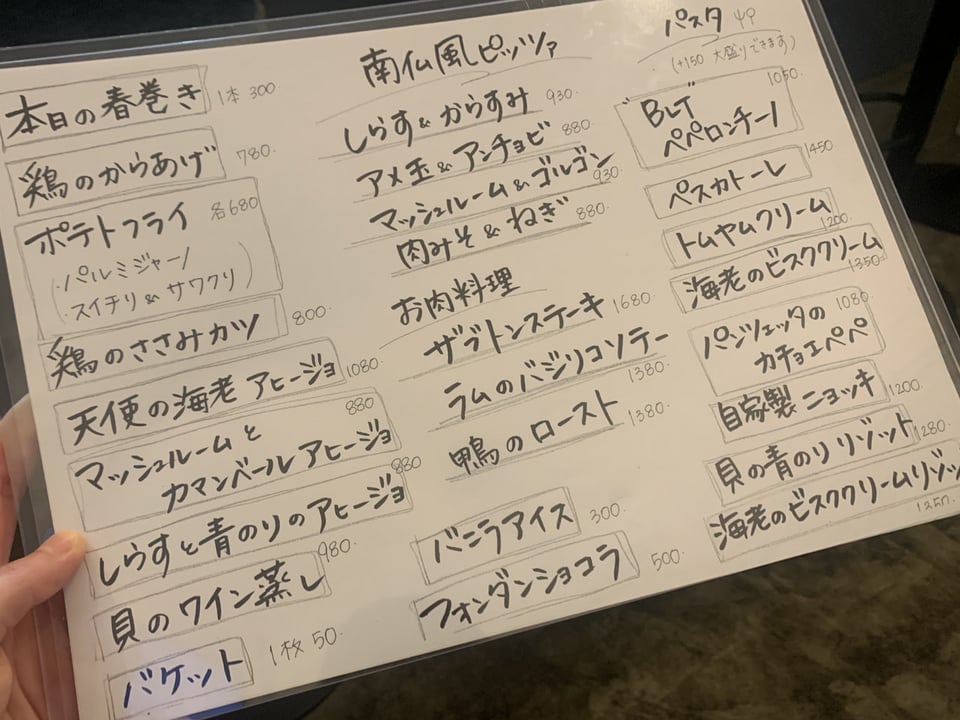 本日の春巻き 1本 300.
鶏のからあげ 780.
ポテトフライ 各680
(・パルミジャーノ
・スイチリ & サワクリ)
鶏のささみカツ 800.
天使の海老 アヒージョ 1080.
マッシュルームと 880
カマンベールアヒージョ
しらすと青のりのアヒージョ 880
貝のワイン蒸し 980.
バケット 1枚 50.
南仏風ピッツァ
しらす & からすみ 930.
アメ玉 & アンチョビ 880
マッシュルーム & ゴルゴン 930
肉みそ & ねぎ 880.
お肉料理
ザブトンステーキ 1680
ラムのバジリコソテー 1380
鴨のロースト 1380
バニラアイス 300.
フォンダンショコラ 500
パスタ
(+150 大盛りできます)
"BLT" 1050
ペペロンチーノ
ペスカトーレ 1450
トムヤムクリーム 1200.
海老のビスククリーム 1350
パンツェッタの 1080
カチョエペペ
自家製ニョッキ 1200
貝の青のり リゾット 1280.
海老のビスククリームリゾッ